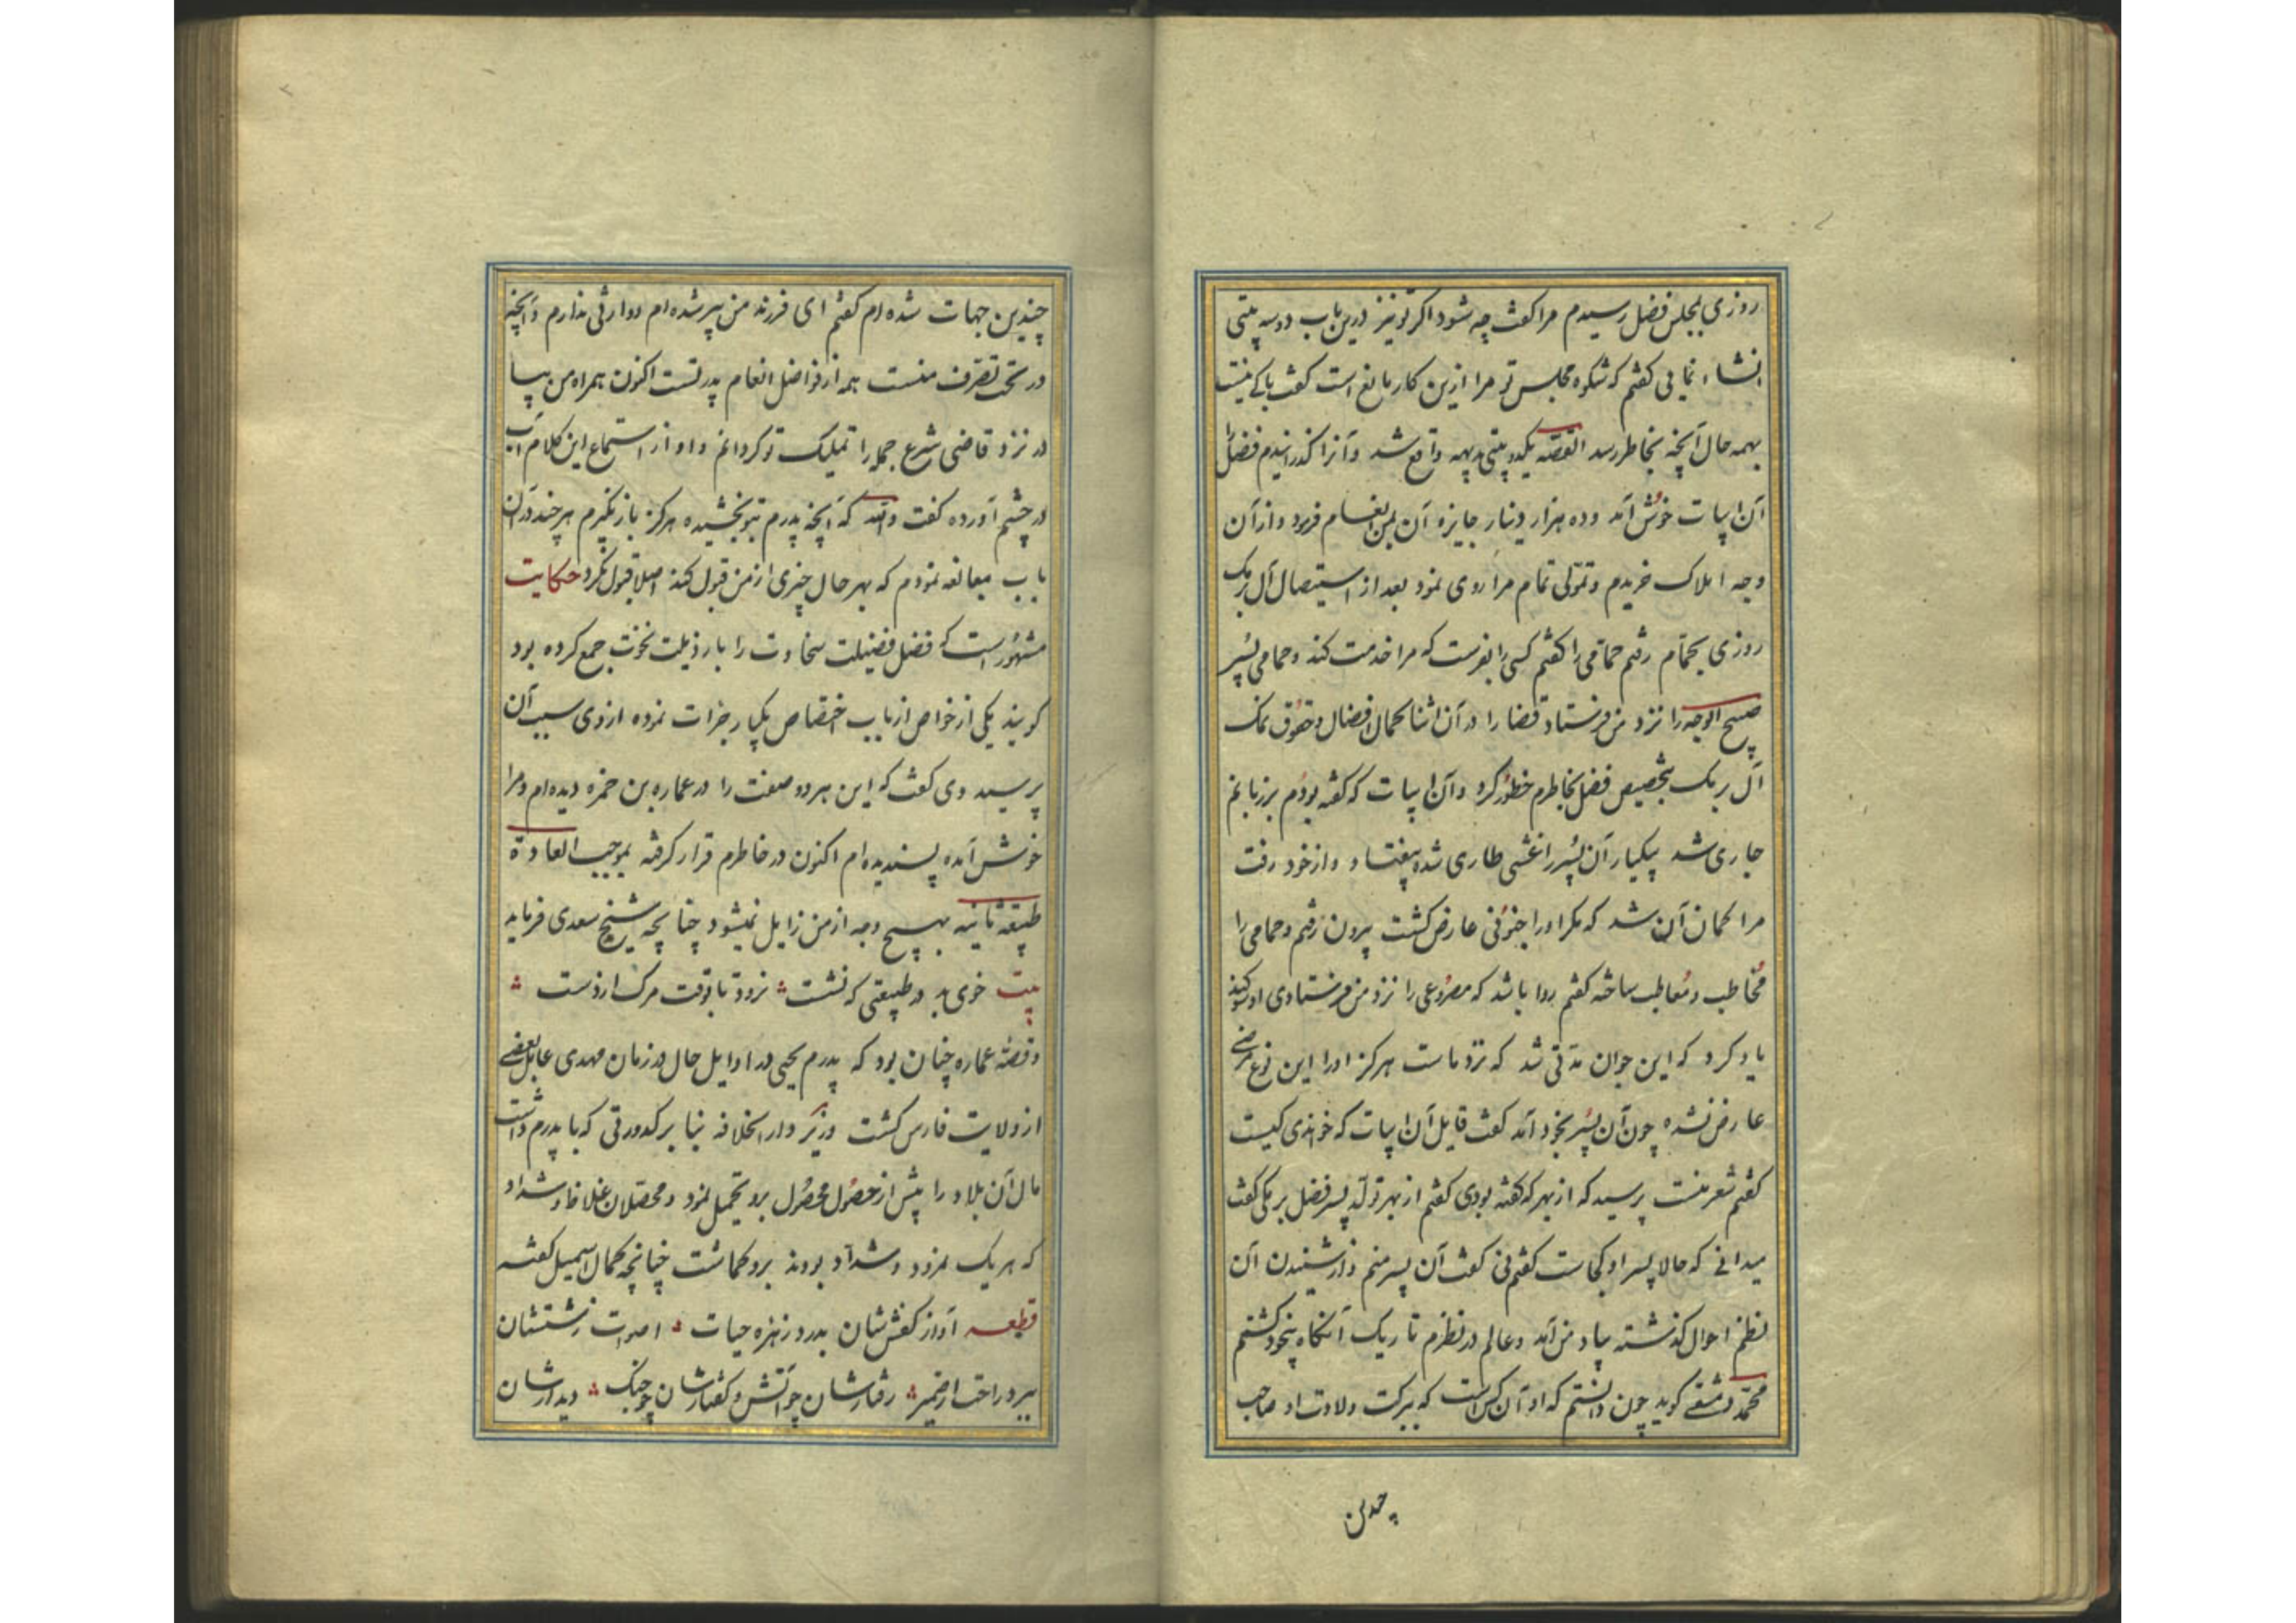 روزی بمجلس فضل رسیدم مرا کفت چه شود اکر تو نیز درین باب دو سه بیتی
انشاء نمایی کفتم که شکوه مجلس تو مرا ازین کار مانع است کفت باکی نیست
بهمه حال آنچه بخاطر رسد القصه یکدو بیتی بدیهه واقع شد و آنرا کذرانیدم فضل را
آن ابیات خوش آمد و ده هزار دینار جایزه آن بمن انعام فرمود و از آن
وجه املاک خریدم و تمولی تمام مرا روی نمود بعد از استیصال آل برمک
روزی بحمام رفتم حمامی را کفتم کسی را بفرست که مرا خدمت کند و حمامی پسر
صبیح الوجه را نزد من فرستاد قضا را در آن اثنا کمال افضال و حقوق نمک
آل برمک بتخصیص فضل بخاطرم خطور کرد و آن ابیات که کفته بودم بر زبانم
جاری شد بیکبار آن پسر را غشی طاری شده بیفتاد و از خود رفت
مرا کمان آن شد که مکر او را جنونی عارض کشت بیرون رفتم و حمامی را
مخاطب و معاطب ساخته کفتم روا باشد که مصروعی را نزد من فرستادی او سوکند
یاد کرد که این جوان مدتی شد که نزد ماست هرکز او را این نوع مرضی
عارض نشده چون آن پسر بخود آمد کفت قایل آن ابیات که خواندی کیست
کفتم شعر منست پرسید که از بهر که کفته بودی کفتم از بهر تولد پسر فضل برمکی کفت
میدانی که حالا پسر او کجاست کفتم نی کفت آن پسر منم و از شنیدن آن
نظم احوال کذشته بیاد من آمد و عالم در نظرم تاریک آنکاه بیخود کشتم
محمد دمشقی کوید چون دانستم که او آن کس است که ببرکت ولادت او صاحب
چندین
چندین جهات شده ام کفتم ای فرزند من پیر شده ام و وارثی ندارم و آنچه
در تحت تصرف منست همه از فواضل انعام پدر تست اکنون همراه من بیا
در نزد قاضی شرع جمله را تملیک تو کردانم و او از استماع این کلام آب
در چشم آورده کفت والله که آنچه پدرم بتو بخشیده هرکز باز نکیرم هر چند در آن
باب مبالغه نمودم که بهر حال چیزی از من قبول کند اصلا قبول نکرد حکایت
مشهور است که فضل فضیلت سخاوت را با رذیلت نخوت جمع کرده بود
کویند یکی از خواص از باب اختصاص یکبار جرات نموده از وی سبب آن
پرسید وی کفت که این هر دو صفت را در عماره بن حمزه دیده ام و مرا
خوش آمده پسندیده ام اکنون در خاطرم قرار کرفته بموجب العادة
طبیعة ثانیه بهیچ وجه از من زایل نمیشود چنانچه شیخ سعدی فرماید
بیت خوی بد در طبیعتی که نشست نرود تا بوقت مرک از دست
و قصه عماره چنان بود که پدرم یحیی در اوایل حال در زمان مهدی عامل بعضی
از ولایت فارس کشت وزیر دار الخلافه بنا بر کدورتی که با پدرم داشت
مال آن بلاد را پیش از حصول محصول برو تحمیل نمود و محصلان غلاظ و شداد
که هر یک نمرود و شداد بودند برو کماشت چنانچه کمال اسمعیل کفته
قطعه آواز کفش شان بدرد زهره حیات اصوات زشتشان
ببرد راحت از ضمیر رفتارشان چو آتش و کفتارشان چو جنک دیدارشان